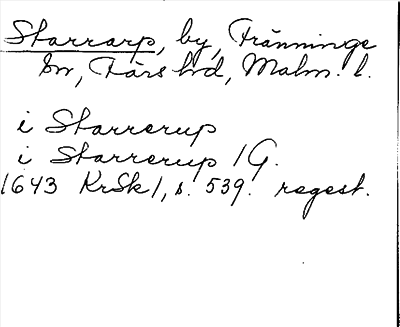 Starrarp, by, Tränninge
sn, Färs hd, Malm. l.
i Starrerup
i Starrerup /G.
1643 KrSk/, s. 539. regest.